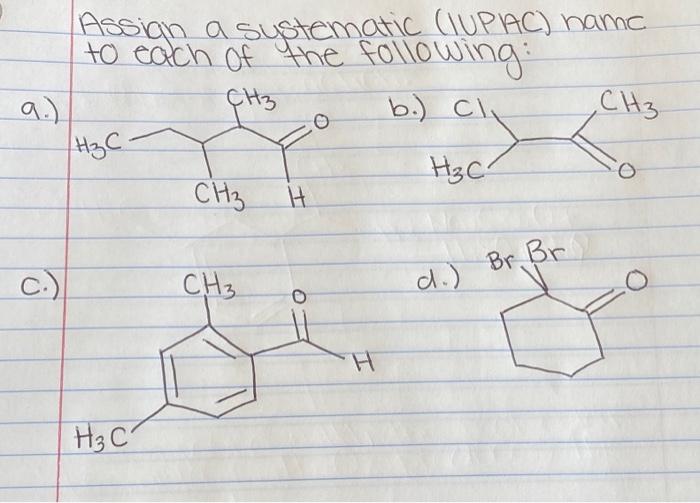 Assign a systematic (IUPAC) name
to each of the following:
a.)
CH3
O
H3C
CH3
H
b.) Cl
CH3
H3C
O
c.)
CH3
O
H
H3C
d.)
Br Br
O